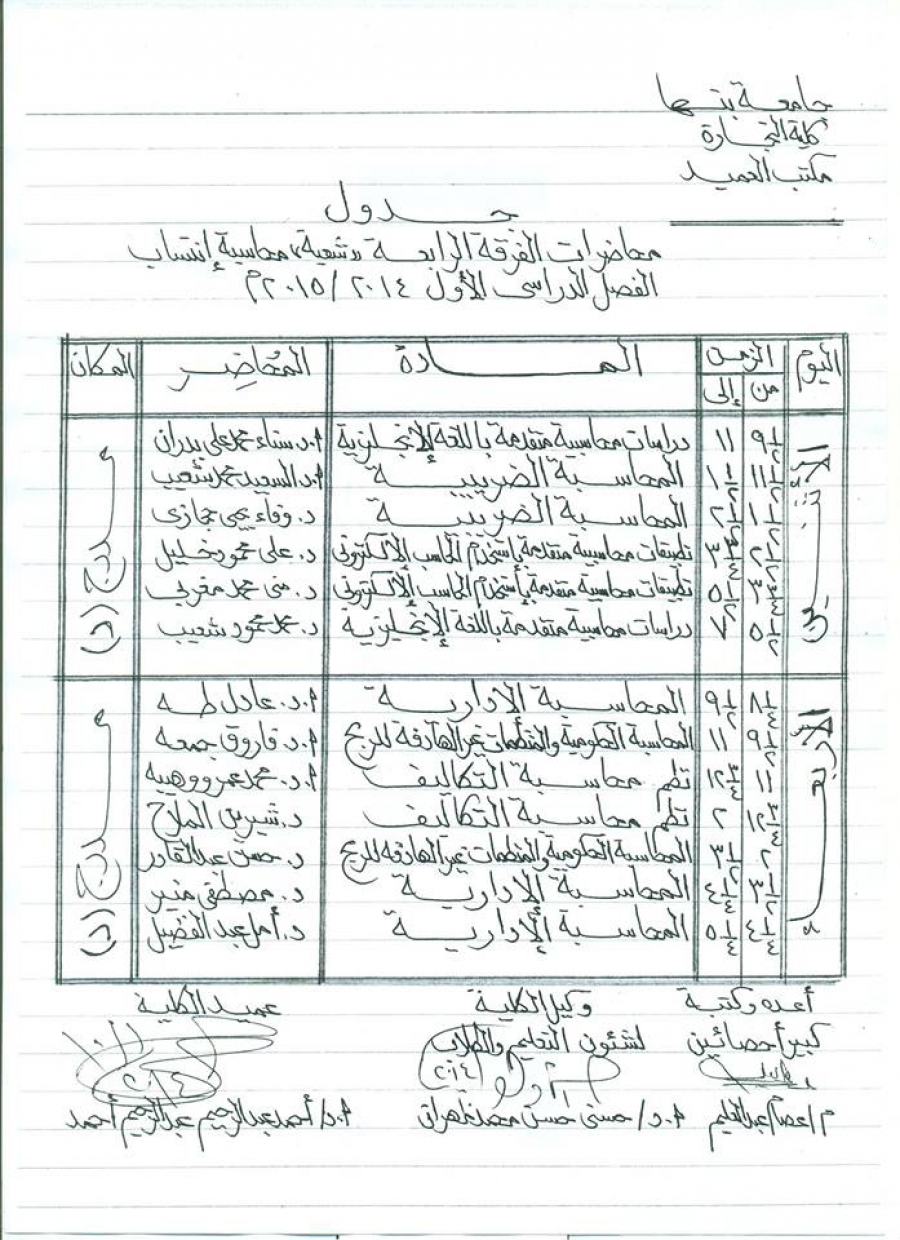 جامعة بنها
كلية التجارة
مكتب العميد
جدول
محاضرات الفرقة الرابعة "شعبة" محاسبة إنتساب
الفصل الدراسى الأول ٢٠١٤ / ٢٠١٥م
اليوم الزمن المادة المحاضر المكان
من إلى
الأثنين مدرج (١)
٩ ١/٢ ١١ دراسات محاسبية متقدمة باللغة الإنجليزية أ.د. سناء محمد على بدران
١١ ١/٢ ١ ١/٢ المحاسبة الضريبية أ.د. السعيد محمد شعيب
١ ١/٢ ٢ ١/٢ المحاسبة الضريبية د. وفاء يحى حجازى
٢ ١/٢ ٣ ٣/٤ تطبيقات محاسبية متقدمة بإستخدام الحاسب الإلكترونى د. على محمود خليل
٣ ٣/٤ ٥ ١/٢ تطبيقات محاسبية متقدمة بإستخدام الحاسب الإلكترونى د. منى محمد مغربى
٥ ١/٢ ٧ دراسات محاسبية متقدمة باللغة الإنجليزية د. محمد محمود شعيب
الأربعاء مدرج (١)
٨ ١/٤ ٩ ١/٢ المحاسبة الإدارية أ.د. عادل طه
٩ ١/٢ ١١ المحاسبة الحكومية والمنظمات غير الهادفة للربح أ.د. فاروق جمعه
١١ ١٢ ٣/٤ نظم محاسبة التكاليف أ.د. محمد عمرو وهيبه
١٢ ٣/٤ ٢ نظم محاسبة التكاليف د. شيرين الملاح
٢ ٣ ١/٢ المحاسبة الحكومية والمنظمات غير الهادفة للربح د. حسن عبدالقادر
٣ ١/٢ ٤ ١/٤ المحاسبة الإدارية د. مصطفى منير
٤ ١/٤ ٥ ١/٤ المحاسبة الإدارية د. أمل عبد الفضيل
أعده وكتبة وكيل الكلية عميد الكلية
كبير أخصائين لشئون التعليم والطلاب
٢٠١٤ ٢٠١٤
م/عصام عبدالحليم أ.د/ حسنى حسن محمد ظهران أ.د/ أحمد عبدالرحيم عبدالرحيم أحمد